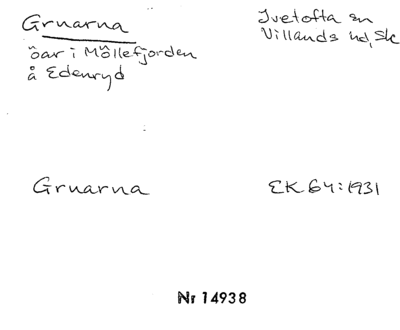 Gruarna
öar i Möllefjorden
å Edenryd
Ivetofta sn
Villands hd, Sk
Gruarna
EK 64:1931
Nr 14938